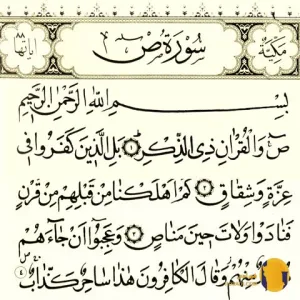 مكية سورة ص آياتها ٨٨
بسم الله الرحمن الرحيم
ص والقرآن ذي الذكر ١ بل الذين كفروا في
عزة وشقاق ٢ كم أهلكنا من قبلهم من قرن
فنادوا ولات حين مناص ٣ وعجبوا أن جاءهم
منهم وقال الكافرون هذا ساحر كذاب ٤